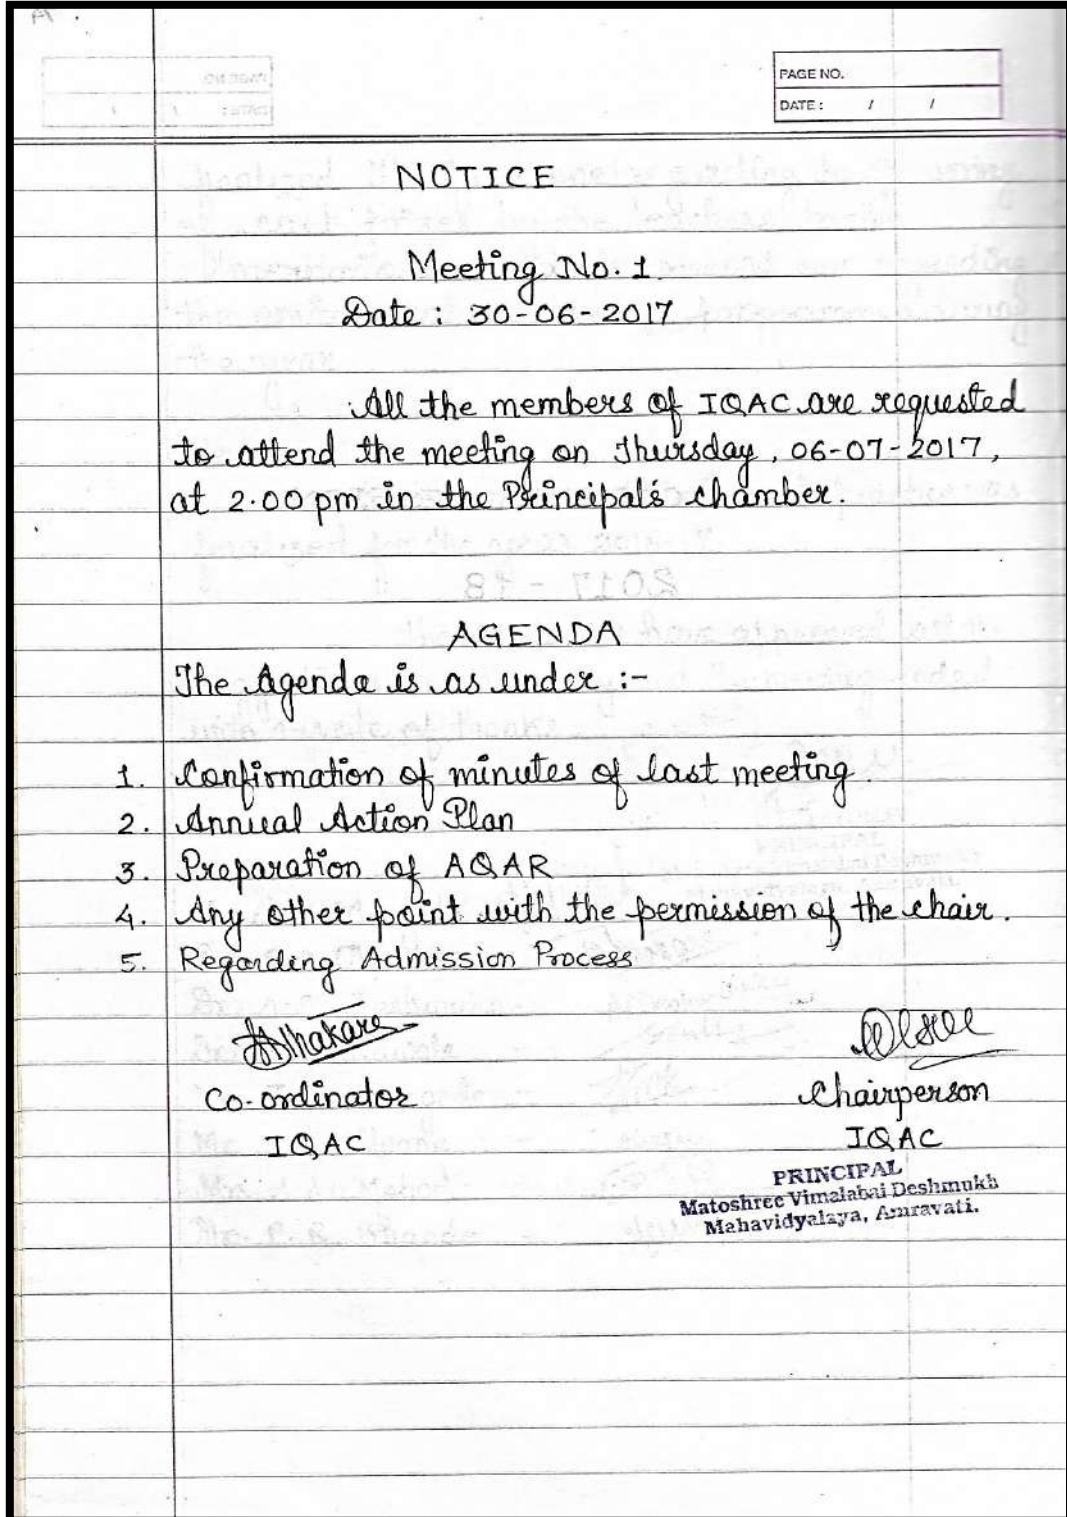 PAGE NO.
DATE : / /
NOTICE
Meeting No. 1.
Date : 30-06-2017
All the members of IQAC are requested
to attend the meeting on Thursday, 06-07-2017,
at 2.00 pm in the Principal's chamber.
AGENDA
The Agenda is as under :-
1. Confirmation of minutes of last meeting.
2. Annual Action Plan
3. Preparation of AQAR
4. Any other point with the permission of the chair.
5. Regarding Admission Process
Co-ordinator
IQAC
Chairperson
IQAC
PRINCIPAL
Matoshree Vimalabai Deshmukh
Mahavidyalaya, Amravati.